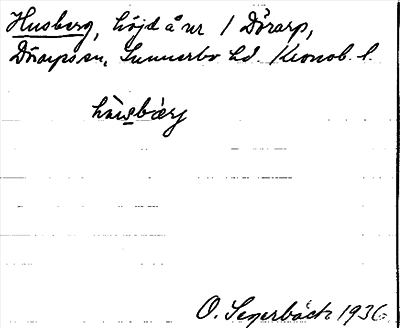 Husberg, höjd å nr 1 Dörarp,
Dörarps sn, Sunnerbo hd. Kronob. l.
O. Segerbäck 1936